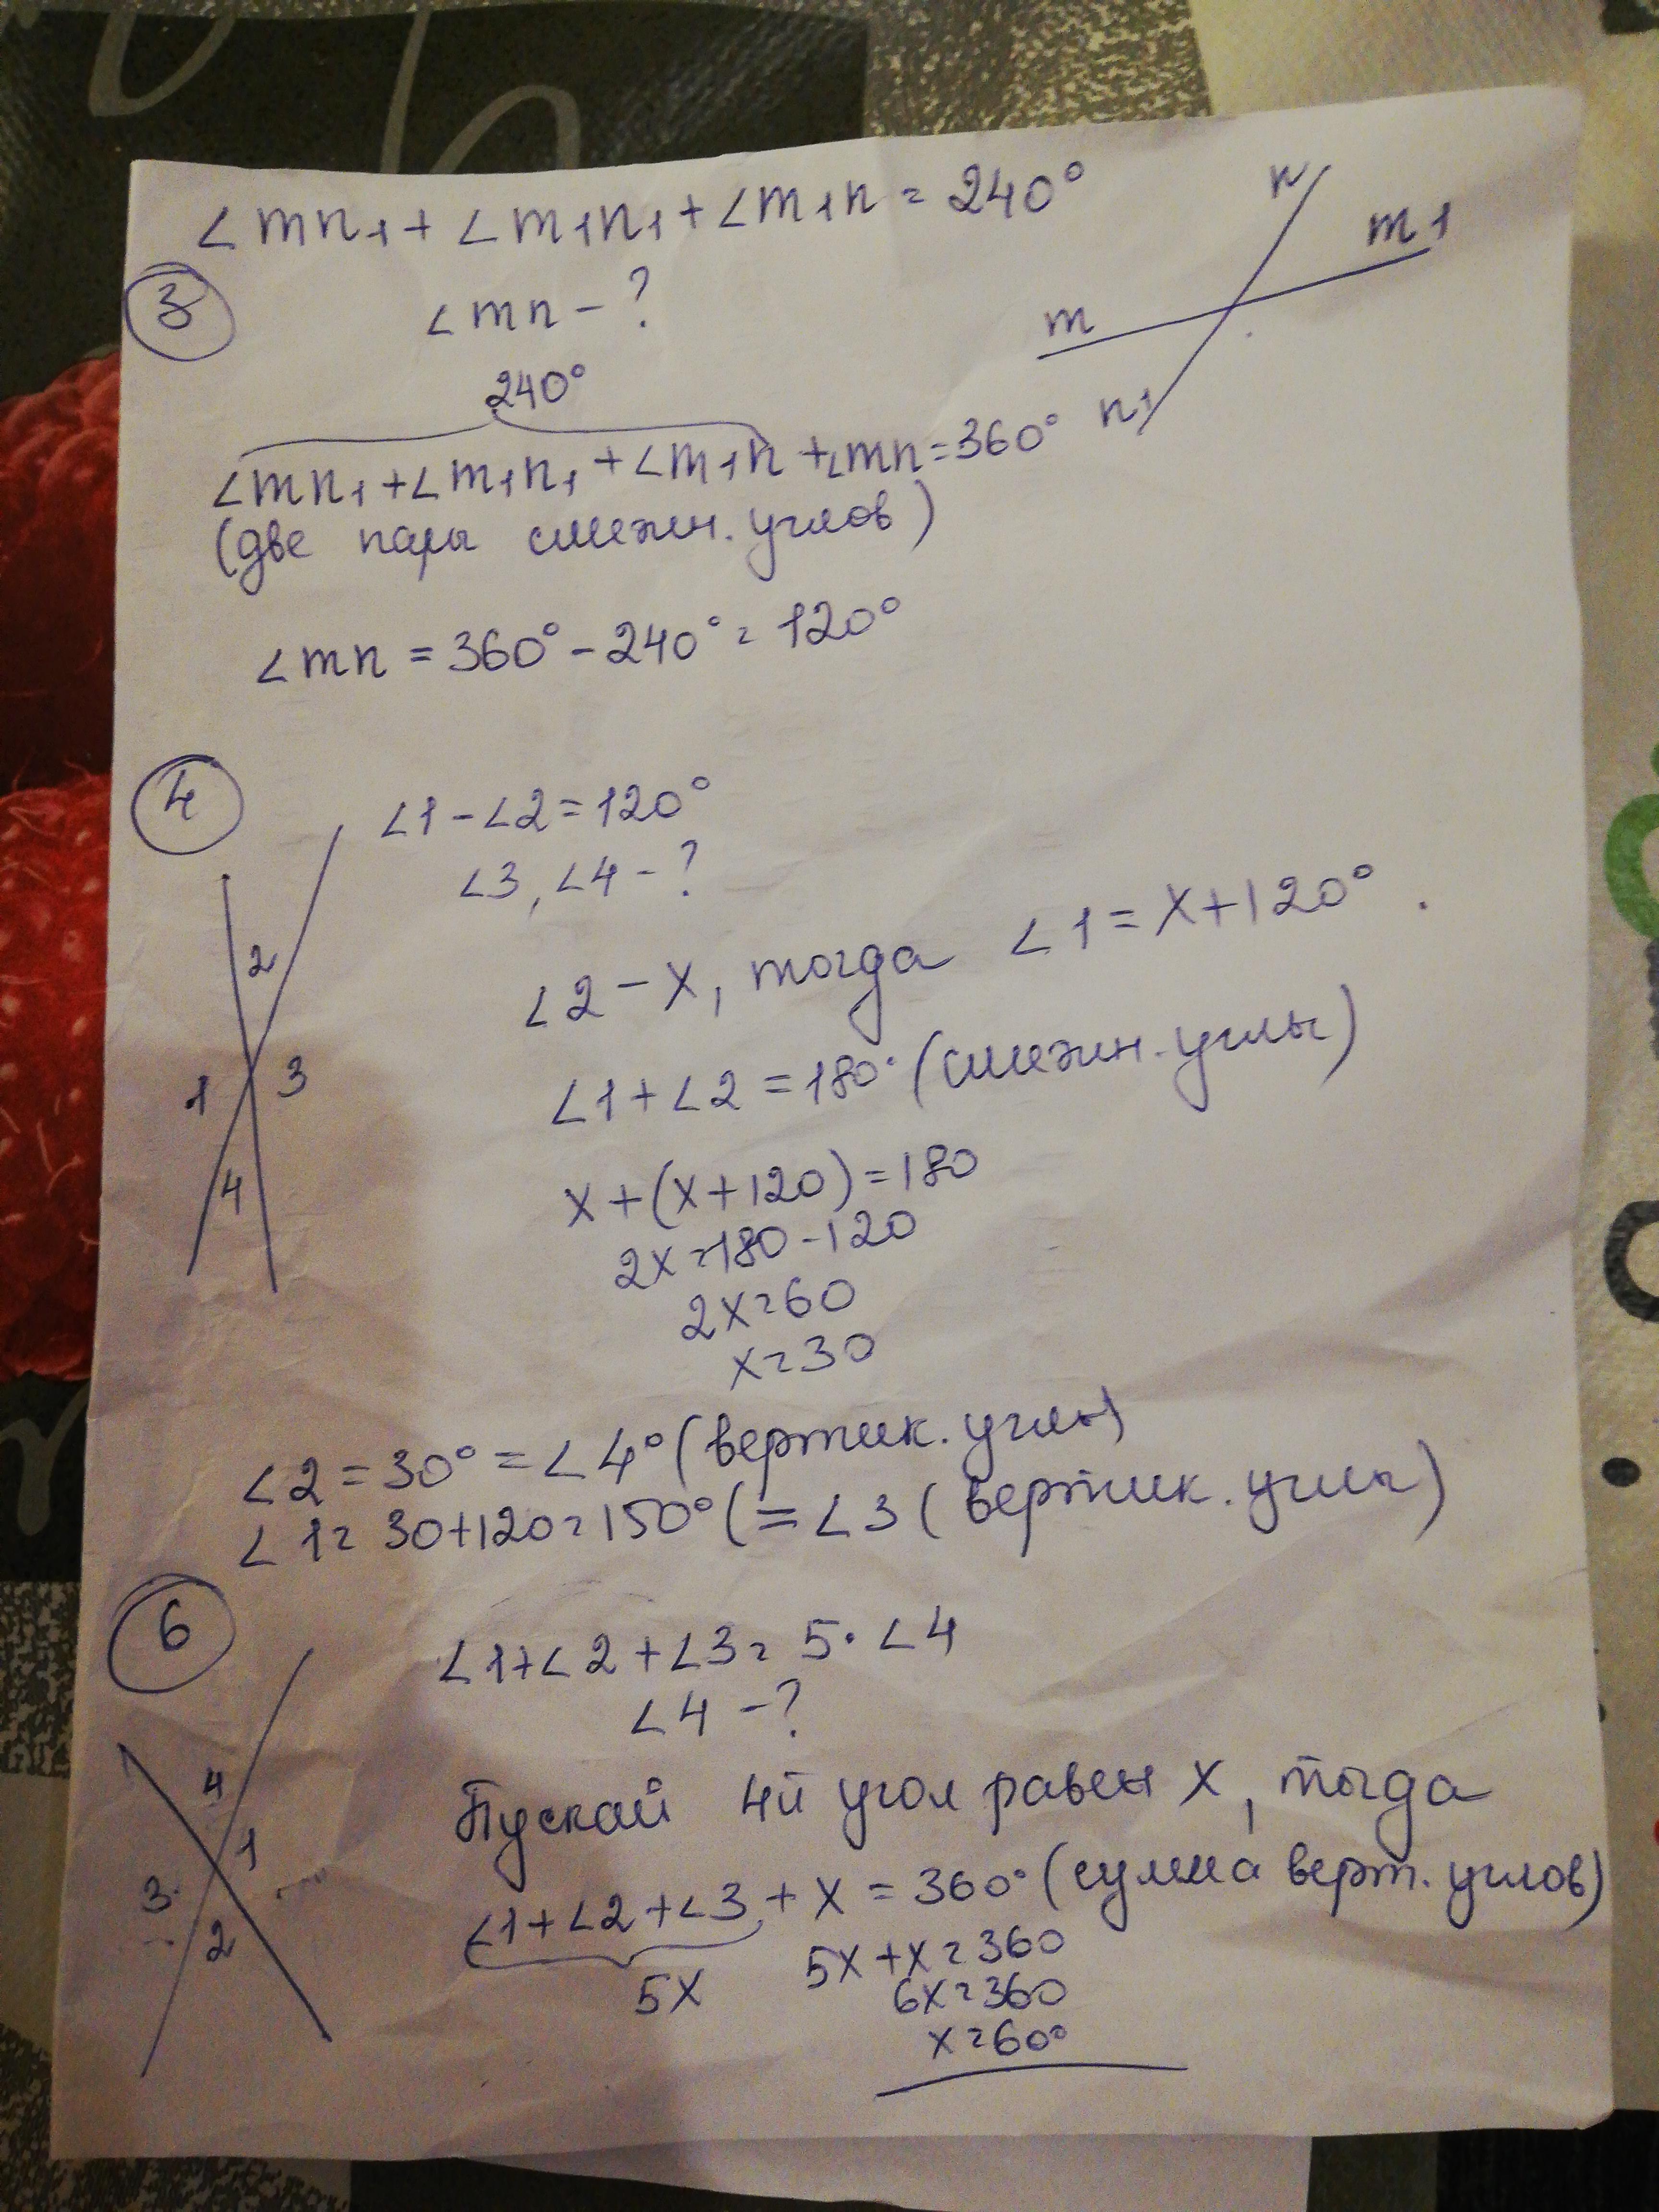 ∠mn₁ + ∠m₁n₁ + ∠m₁n = 240°
n
m1
m
n1
3
∠mn - ?
240°
∠mn₁ + ∠m₁n₁ + ∠m₁n + ∠mn = 360°
(две пары смежн. углов)
∠mn = 360° - 240° = 120°
4
∠1 - ∠2 = 120°
∠3, ∠4 - ?
2
1 3
4
∠2 - x, тогда ∠1 = x + 120°.
∠1 + ∠2 = 180° (смежн. углы)
x + (x + 120) = 180
2x = 180 - 120
2x = 60
x = 30
∠2 = 30° = ∠4° (вертик. углы)
∠1 = 30 + 120 = 150° (= ∠3 (вертик. углы)
6
∠1 + ∠2 + ∠3 = 5 · ∠4
∠4 - ?
4
1
3
2
Пускай 4й угол равен x, тогда
∠1 + ∠2 + ∠3 + x = 360° (сумма верт. углов)
5x
5x + x = 360
6x = 360
x = 60°